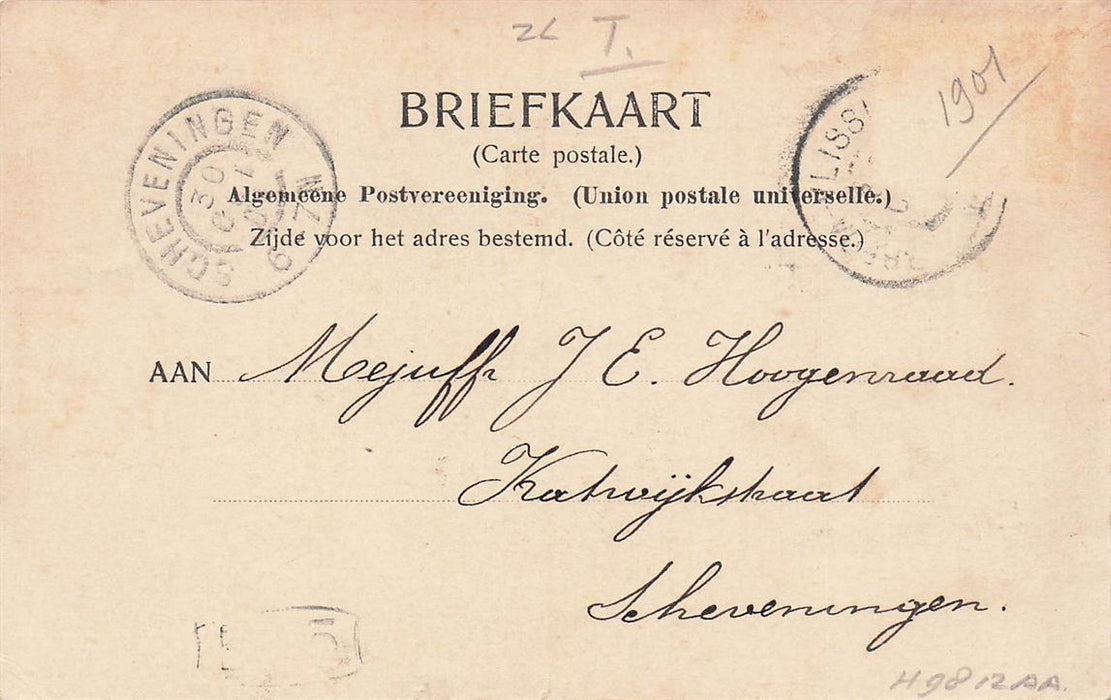 T.
1901
BRIEFKAART
(Carte postale.)
Algemeene Postvereeniging. (Union postale universelle.)
Zijde voor het adres bestemd. (Côté réservé à l'adresse.)
SCHEVENINGEN
30
AAN Mejuffr J E. Hoogenraad.
Katwijkstraat
Scheveningen.
5
H9812AA.